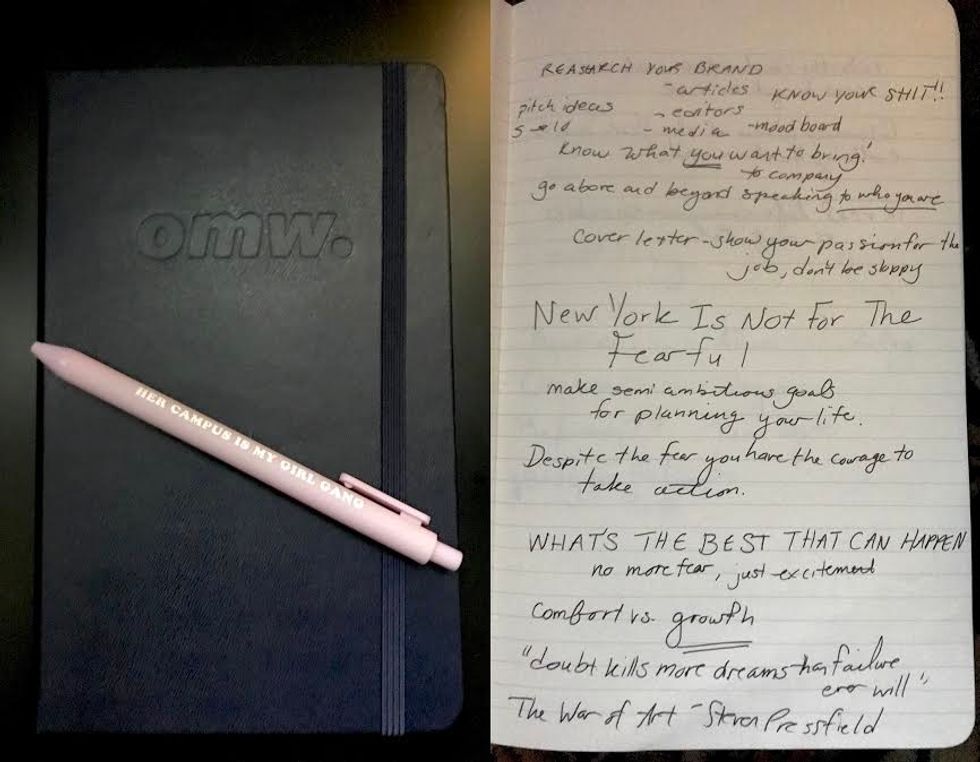 omw.
HER CAMPUS IS MY GIRL GANG
REASARCH YOUR BRAND
- articles KNOW YOUR SHIT!!
pitch ideas - editors
- media - mood board
Know what you want to bring!
to company
go above and beyond speaking to who you are
Cover letter - show your passion for the
job, don't be sloppy
New York Is Not For The
Fearful
make semi ambitious goals
for planning your life.
Despite the fear you have the courage to
take action.
WHAT'S THE BEST THAT CAN HAPPEN
no more fear, just excitement
Comfort vs. growth
"doubt kills more dreams than failure
ever will"
The War of Art - Steven Pressfield